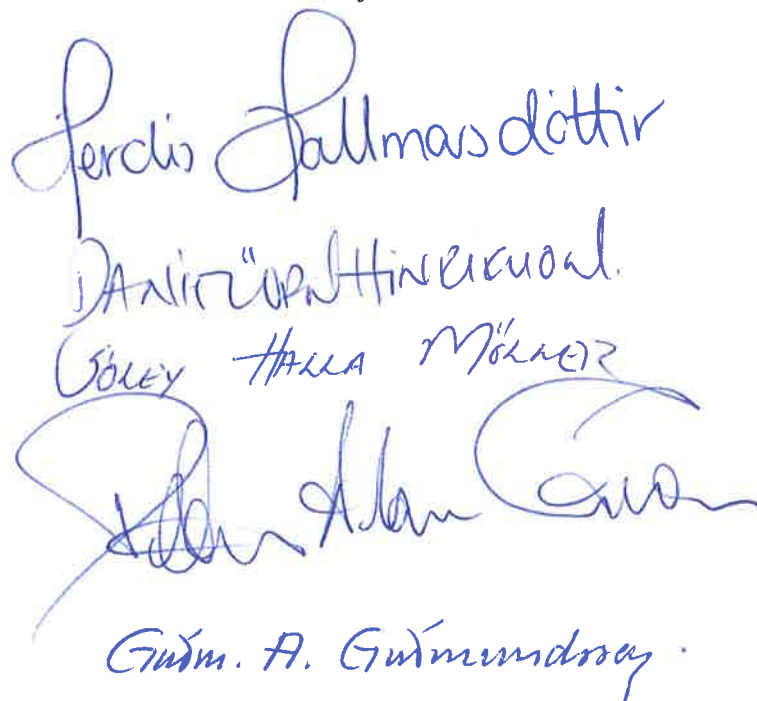 Herdis Hallmarsdóttir
Daníel Örn Hinriksson.
Sóley Halla Möller
Guðm. A. Guðmundsson.